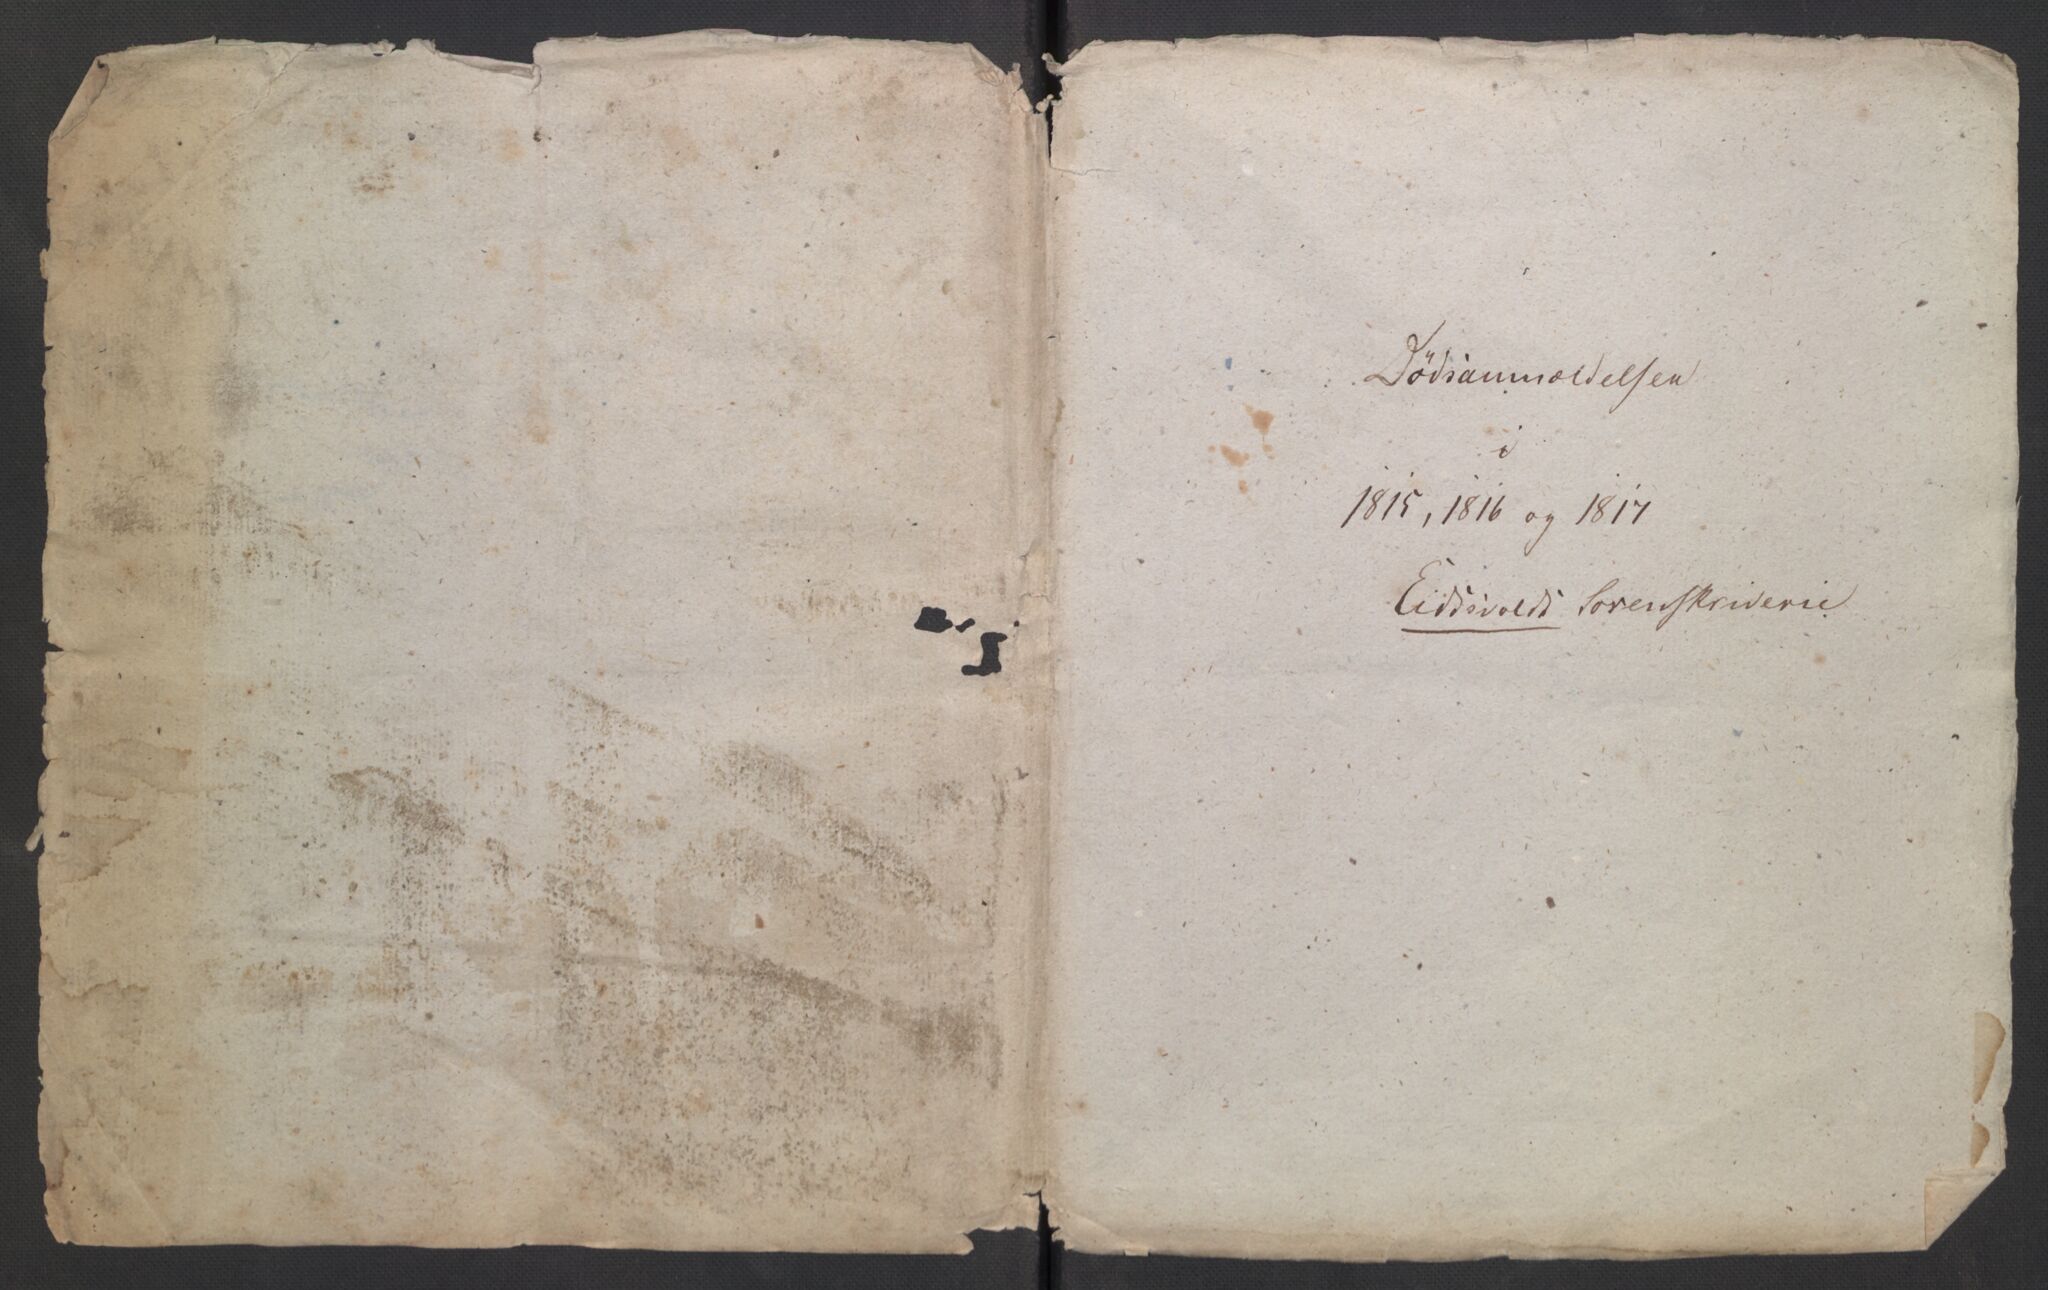 Dödsanmældelser
i
1815, 1816 og 1817
Eidsvolds Sorenskriverie